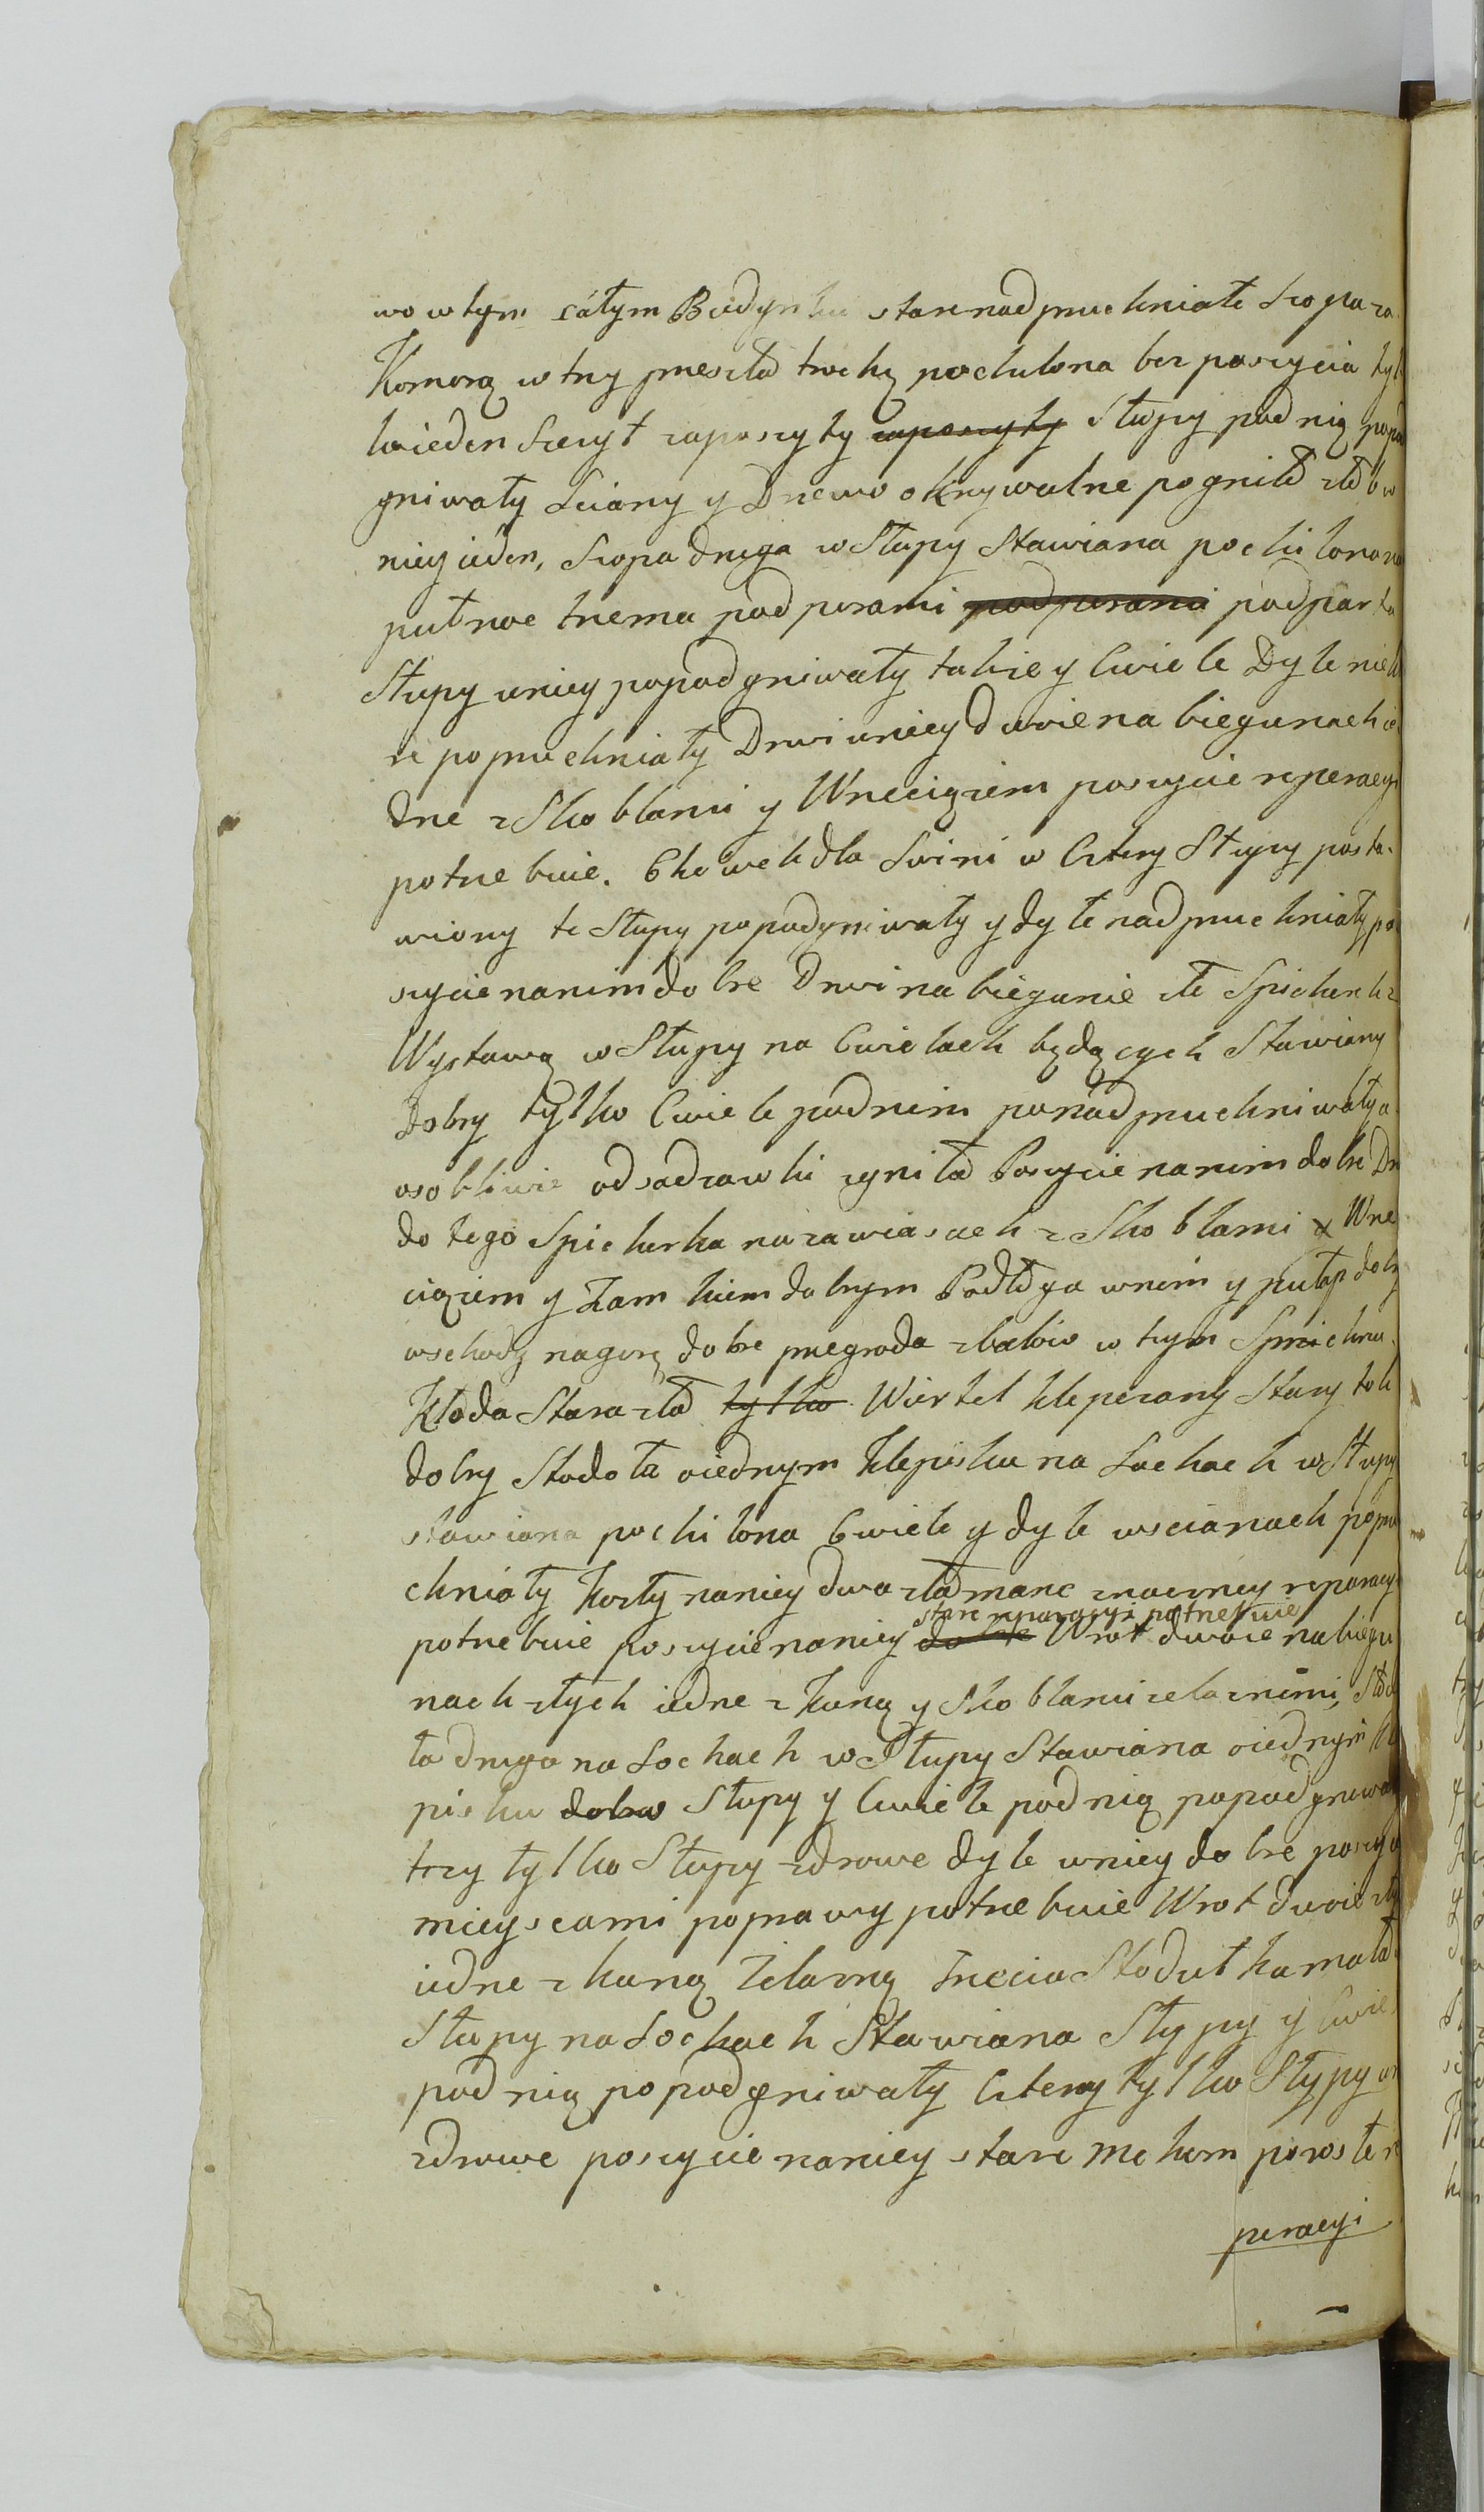 wo w tym całym Budynku stare nadpruchniałe Szopa za
Komorą w trzy przesła trochę pochylona bez poszycia tyl
ko ieden szczyt zaposzyty zaposzyty Słupy pod nią popod
gniwały Sciany y Drzewo okrywalne pogniło złob w
niey ieden, Szopa druga w Słupy Stawiana pochilona na
putnoc trzema podporami podporami podparta
Słupy uniey popodgniwały takze y Cwiele Dyle niekto
re popruchniały Drzwi uniey dwie na biegunach ie
dne z Skoblami y Wrzeciązem poszycie reperacyi
potrzebuie. Chlewek dla Swini w Cztery Słupy posta-
wiony te Słupy popodgniwały y dyle nadpruchniały po
szycie nanim dobre Drzwi na biegunie złe Spichrek z
Wystawą w Słupy na Cwielach będących Stawiany
dobry tylko Cwiele podnim ponadpruchniwały a
osobliwie od sadzawki zgniła Poszycie nanim dobre Drz
do tego Spichrka na zawiasach z Skoblami y Wrze
ciązem y Zamkiem dobrym Podłoga wnim y pułap dobry
wschody nagorę dobre przegroda zbalów w tym Spichrzu
Kłoda Stara zła tylko Wiertel kleperany Stary tok
dobry Stodoła oiednym Klepisku na Sochach w Słupy
stawiana pochilona Cwiele y dyle wscianach popru
chniały Kozły naniey dwa złamane znaczney reparacyi
potrzebuie poszycie naniey dobre stare reparacyi potrzebuie Wrot dwoie nabiegu
nach złych iedne z Kuną y Skoblami zelaznemi, Stodo
ła druga na Sochach w Słupy Stawiana oiednym Kle
pisku dobre Słupy y Cwiele podnią popodgniwały
trzy tylko Słupy zdrowe dyle wniey dobre poszycie
mieyscami poprawy potrzebuie Wrot dwoie złych
iedne z kuną Zelazną Trzecia Stodułka mała w
Słupy na Sochach Stawiana Słupy y Cwiele
podnią popodgniwały Cztery tylko Słupy wn
zdrowe poszycie naniey stare Mchem porosłe re
peracyi